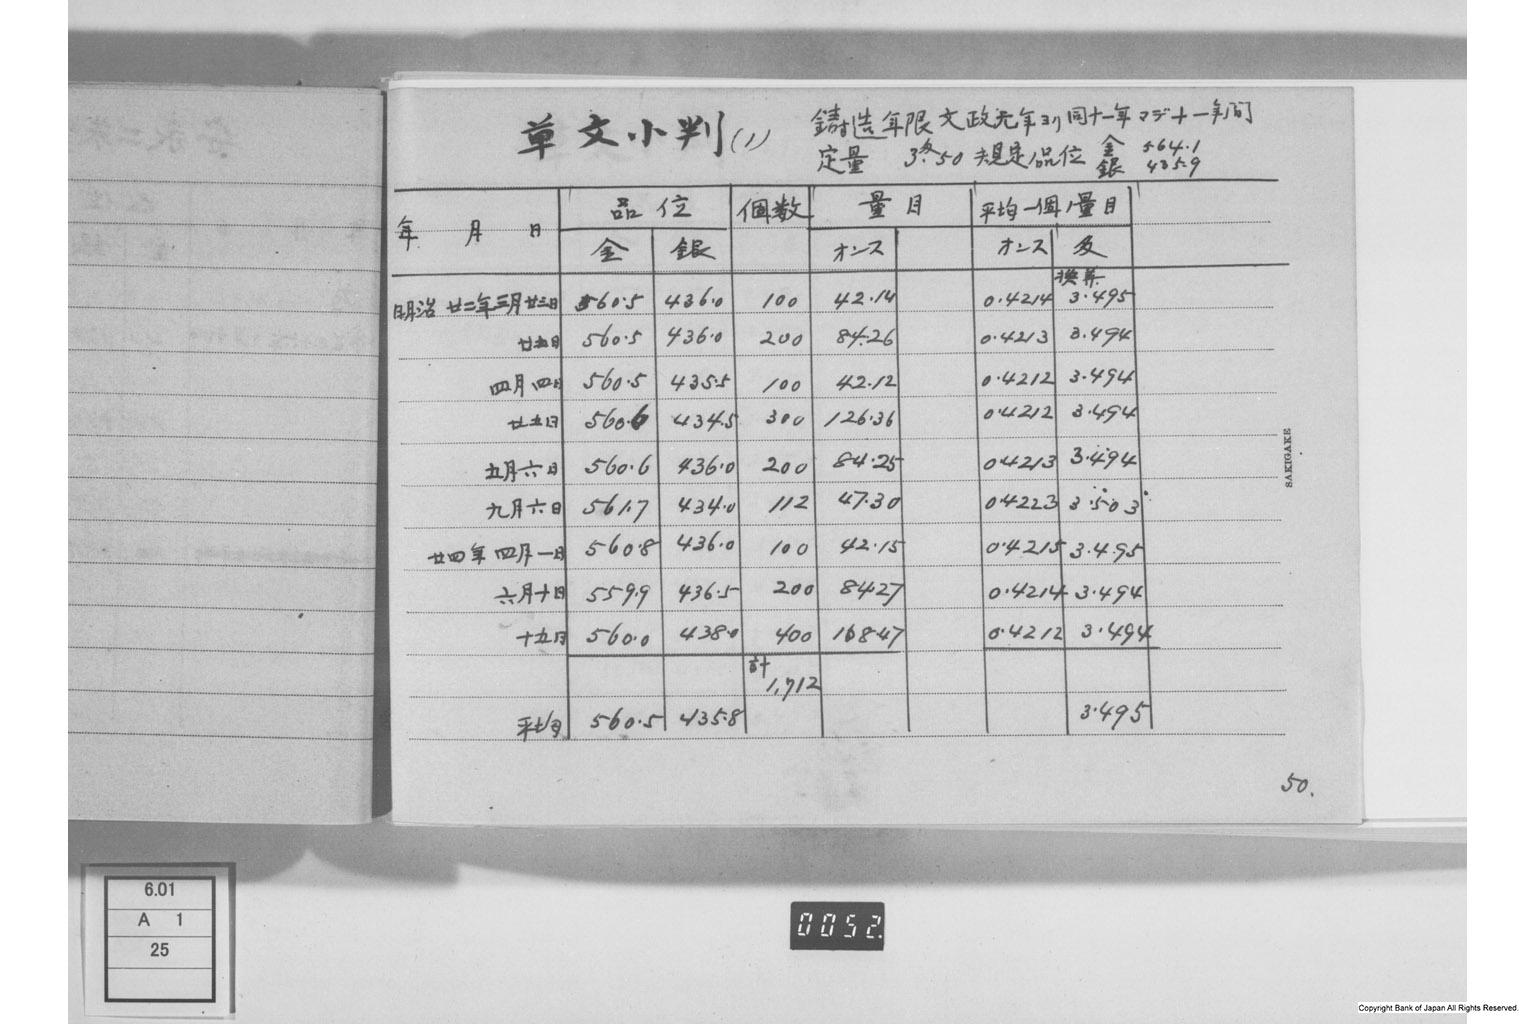 草文小判(1)
鋳造年限 文政元年ヨリ同十一年マデ十一年間
定量 3匁50 規定品位 金 564.1
銀 435.9
年 月 日 品位 個数 量目 平均一個ノ量目
金 銀 オンス オンス 匁
換算
明治廿二年三月廿三日 560.5 436.0 100 42.14 0.4214 3.495
廿五日 560.5 436.0 200 84.26 0.4213 3.494
四月四日 560.5 435.5 100 42.12 0.4212 3.494
廿五日 560.6 434.5 300 126.36 0.4212 3.494
五月六日 560.6 436.0 200 84.25 0.4213 3.494
九月六日 561.7 434.0 112 47.30 0.4223 3.503
廿四年四月一日 560.8 436.0 100 42.15 0.4215 3.495
六月十日 559.9 436.5 200 84.27 0.4214 3.494
十五日 560.0 438.0 400 168.47 0.4212 3.494
計
1,712
平均 560.5 435.8 3.495
SAKIGAKE
50.
6.01
A 1
25
0052
Copyright Bank of Japan All Rights Reserved.